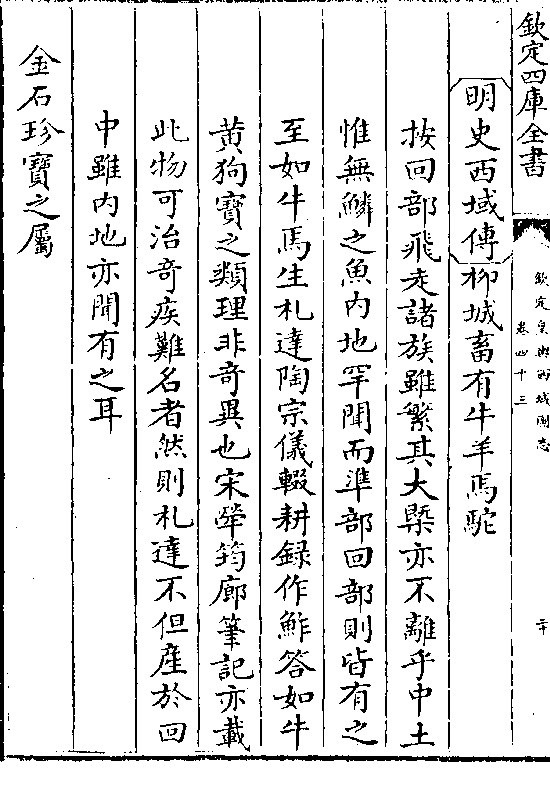 欽定四庫全書
欽定皇輿西域圖志
卷四十三
二十
明史西域傳柳城畜有牛羊馬駝
按回部飛走諸族雖繁其大槩亦不離乎中土
惟無鱗之魚内地罕聞而準部回部則皆有之
至如牛馬生札達陶宗儀輟耕録作鮓答如牛
黃狗寶之類理非奇異也宋犖筠廊筆記亦載
此物可治奇疾難名者然則札達不但産於回
中雖内地亦聞有之耳
金石珍寶之屬